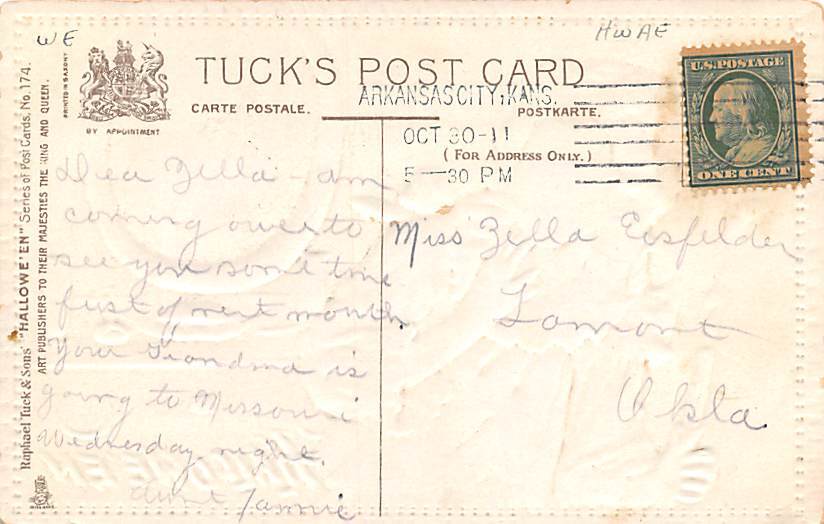 WE
HWAE
TUCK'S POST CARD
CARTE POSTALE.
POSTKARTE.
BY APPOINTMENT
(FOR ADDRESS ONLY.)
ARKANSAS CITY, KANS.
OCT 30-11
5-30 PM
U.S. POSTAGE
ONE CENT
Raphael Tuck & Sons' "HALLOWE'EN" Series of Post Cards, No. 174.
ART PUBLISHERS TO THEIR MAJESTIES THE KING AND QUEEN.
PRINTED IN SAXONY
Dea Zella - am
coming over to
see you some time
first of next month
Your Grandma is
going to Missouri
Wednesday night.
Aunt Fannie
Miss Zella Eisfelder
Lamont
Okla.